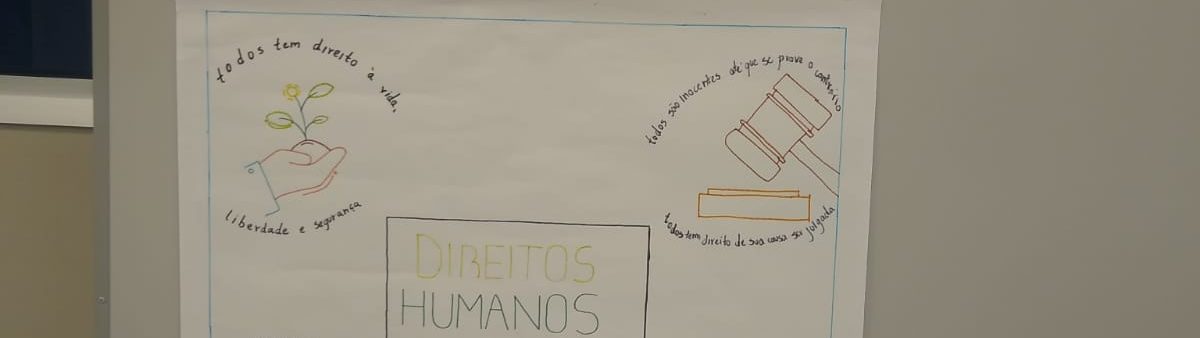 todos tem direito à vida,
liberdade e segurança
todos são inocentes até que se prove o contrário
todos tem direito de sua causa ser julgada
DIREITOS
HUMANOS